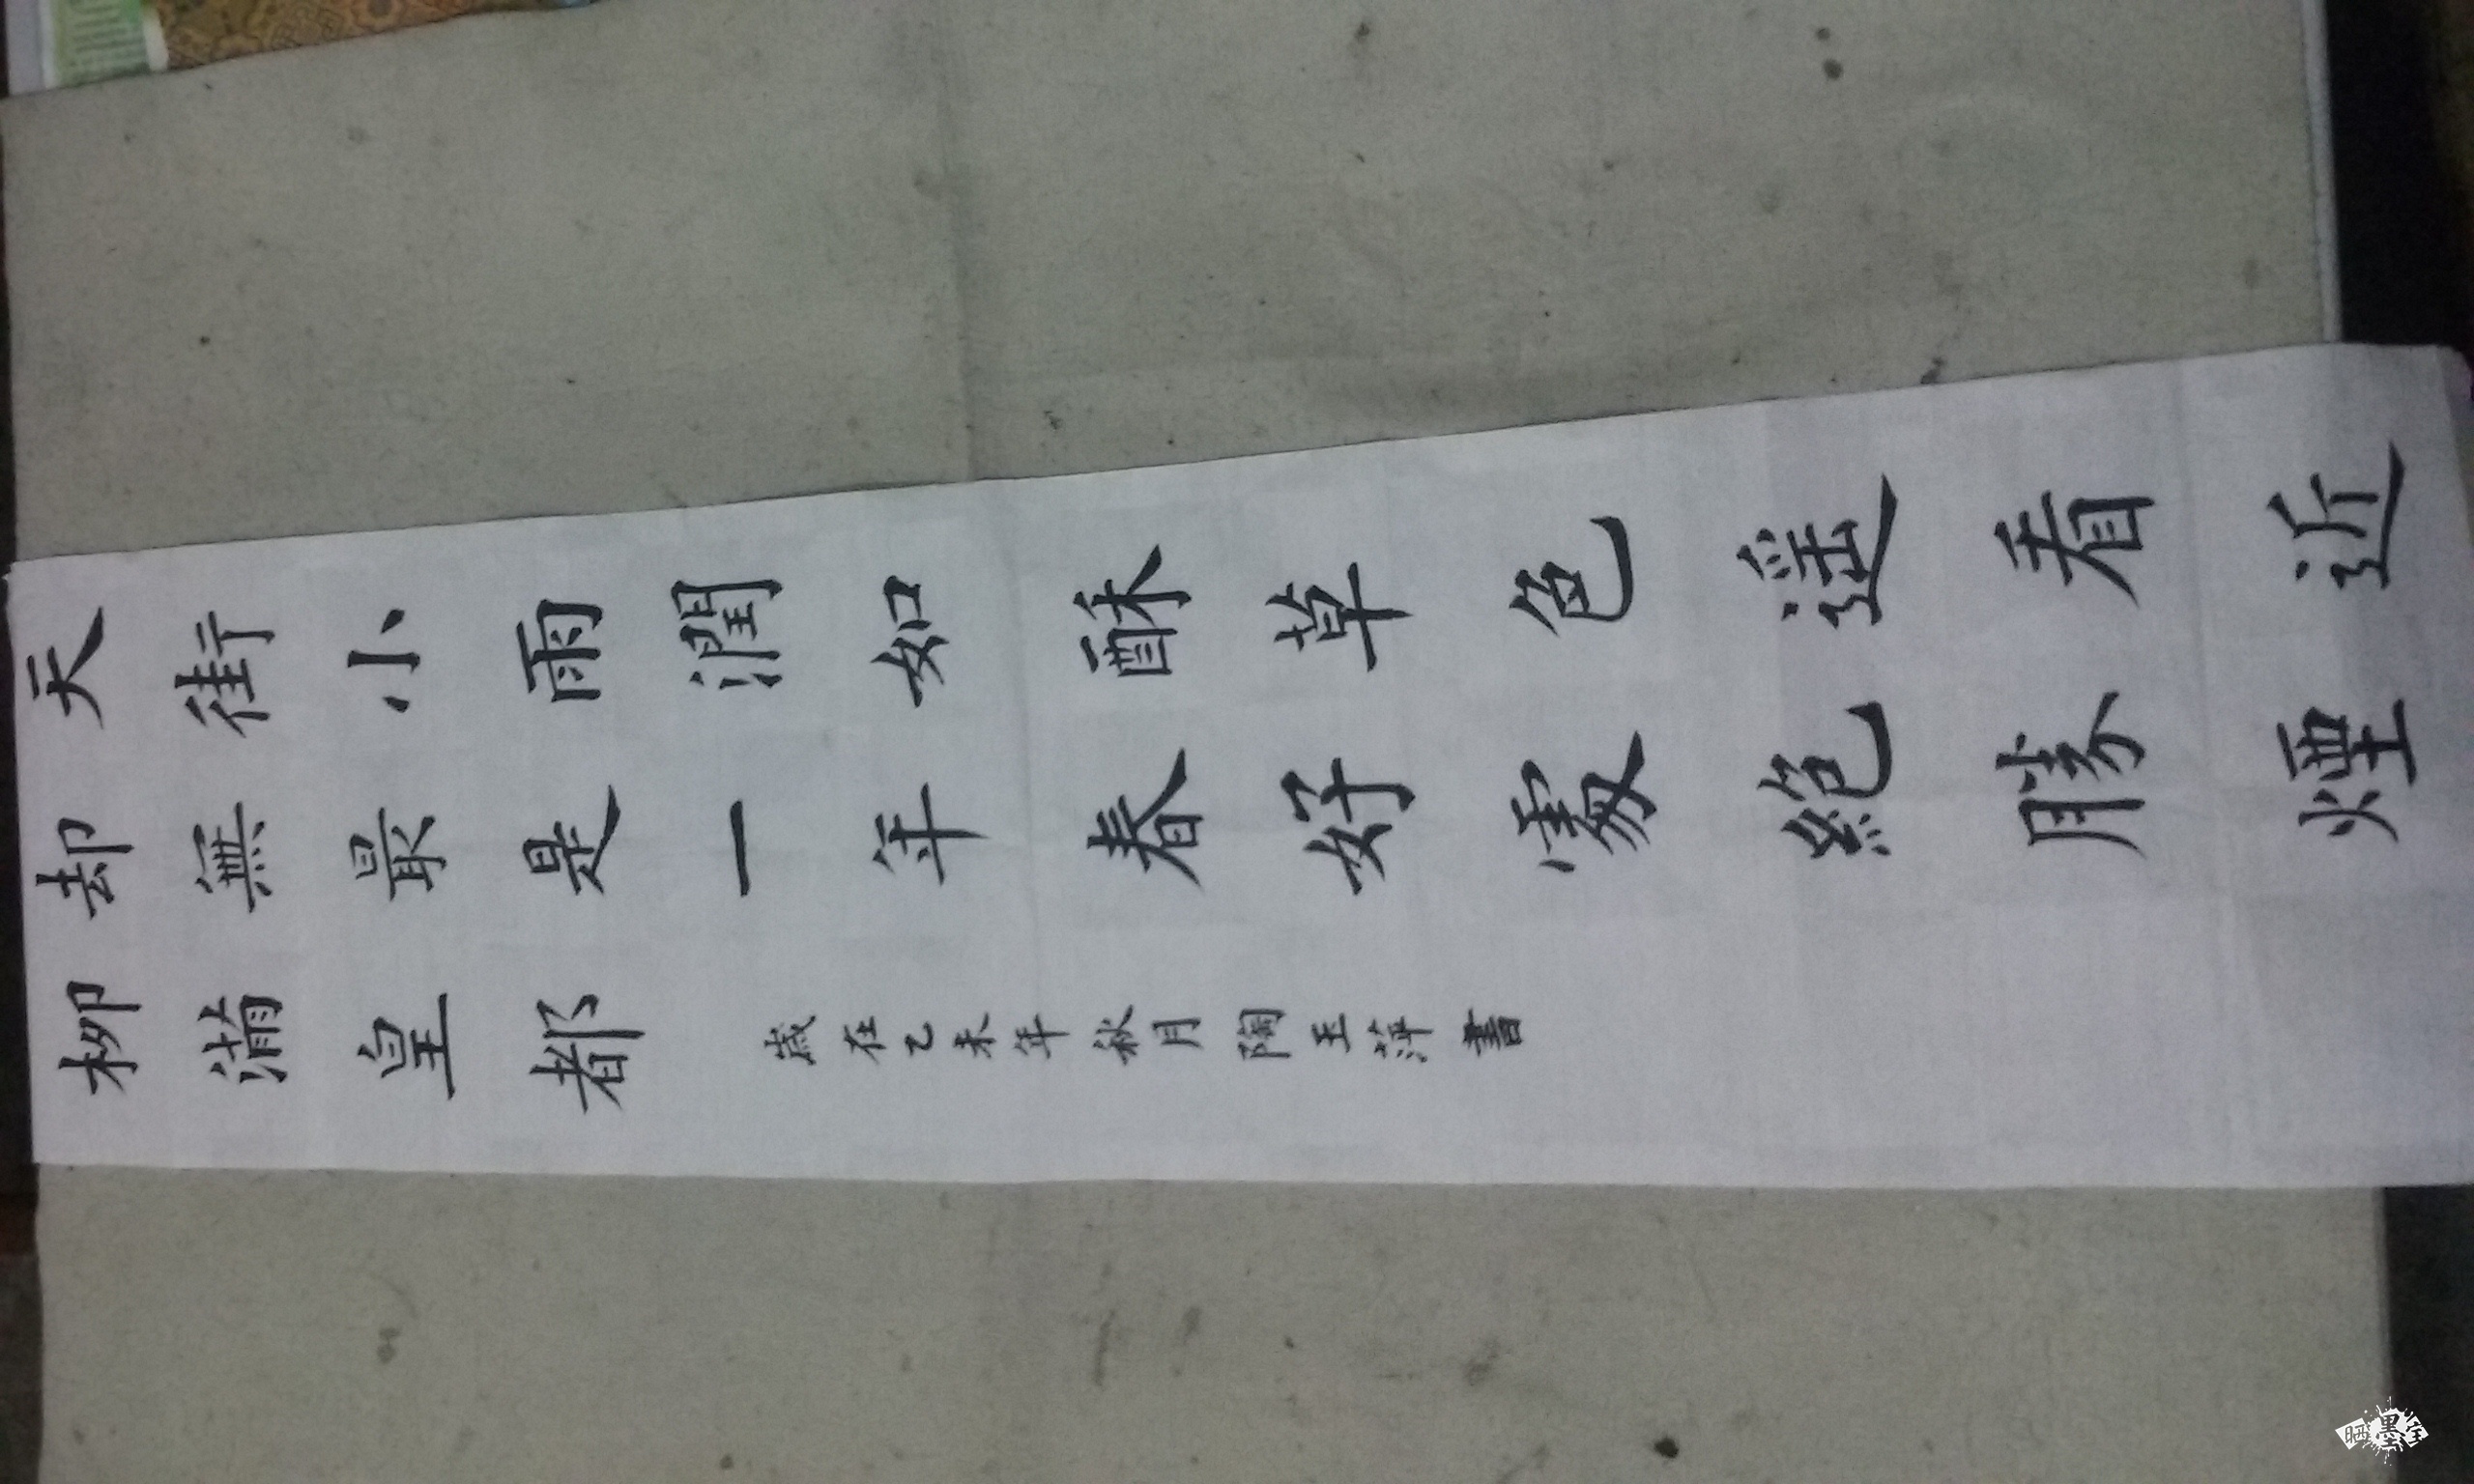 天街小雨潤如酥草色遥看近
却無最是一年春好處絶勝煙
柳滿皇都
歲在乙未年秋月陶玉萍書
晒墨宝